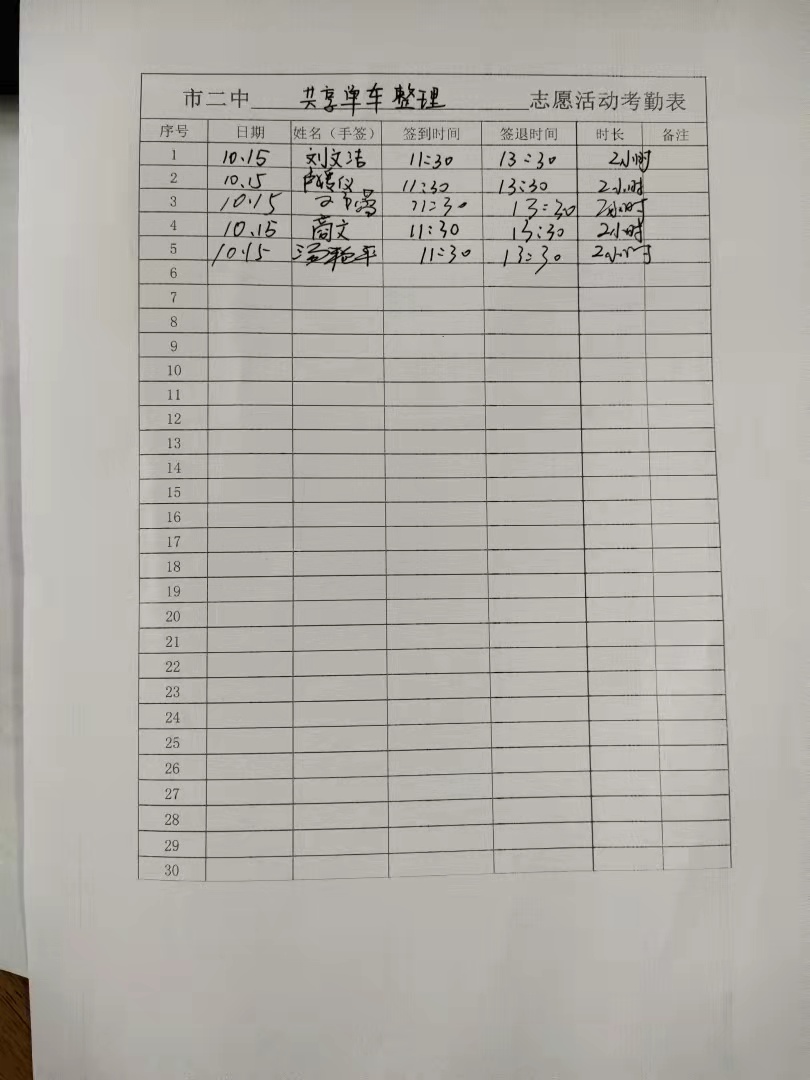 市二中 共享单车整理 志愿活动考勤表
序号 日期 姓名（手签） 签到时间 签退时间 时长 备注
1 10.15 刘文洁 11:30 13:30 2小时
2 10.15 11:30 13:30 2小时
3 10.15 11:30 13:30 2小时
4 10.15 高文 11:30 13:30 2小时
5 10.15 11:30 13:30 2小时
6
7
8
9
10
11
12
13
14
15
16
17
18
19
20
21
22
23
24
25
26
27
28
29
30